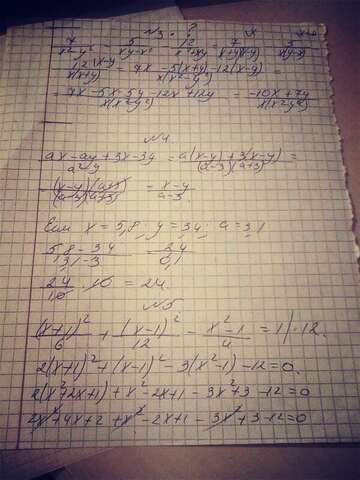 №3.
7/(x²-y²) - 5/(xy-x²) - 12/(x²+xy) = 7/((x+y)(x-y)) - 5/(x(x-y))
- 12/(x(x+y)) = (7x - 5(x+y) - 12(x-y))/(x(x²-y²)) =
= (7x - 5x - 5y - 12x + 12y)/(x(x²-y²)) = (-10x + 7y)/(x(x²-y²))
№4
(ax - ay + 3x - 3y)/(a²-9) = (a(x-y) + 3(x-y))/((a-3)(a+3)) =
= ((x-y)(a+3))/((a-3)(a+3)) = (x-y)/(a-3)
Если x = 5,8, y = 3,4; a = 3,1
(5,8 - 3,4)/(3,1 - 3) = 2,4/0,1
24/10 · 10 = 24.
№5
(x+1)²/6 + (x-1)²/12 - (x²-1)/4 = 1 |·12.
2(x+1)² + (x-1)² - 3(x²-1) - 12 = 0.
2(x²+2x+1) + x² - 2x + 1 - 3x² + 3 - 12 = 0
2x² + 4x + 2 + x² - 2x + 1 - 3x² + 3 - 12 = 0